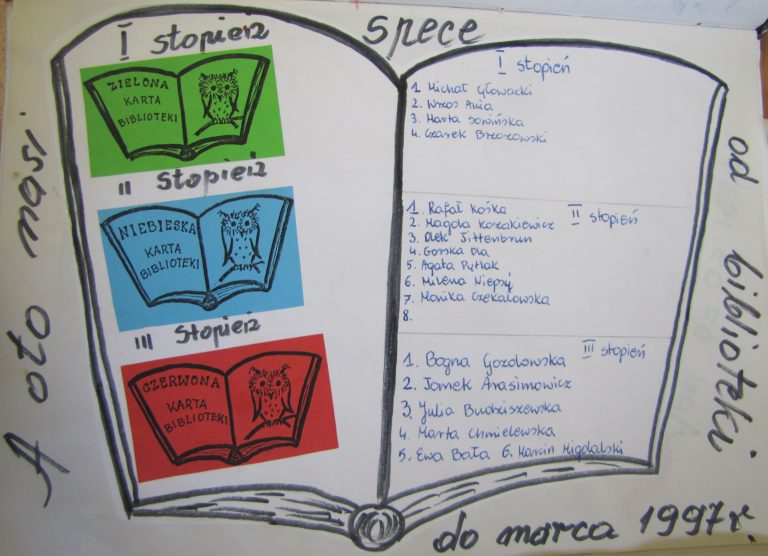 A oto nasi
spece
od biblioteki
do marca 1997 r.
I stopień
ZIELONA
KARTA
BIBLIOTEKI
II stopień
NIEBIESKA
KARTA
BIBLIOTEKI
III stopień
CZERWONA
KARTA
BIBLIOTEKI
I stopień
1. Michał Głowacki
2. Wzos Ania
3. Marta Sowińska
4. Czarek Brzozowski
II stopień
1. Rafał Kośka
2. Magda Kozakiewicz
3. Olek Jittenbrun
4. Gorska Ola
5. Agata Pytlak
6. Milena Niepsý
7. Monika Czekalowska
8.
III stopień
1. Bogna Gozdowska
2. Tomek Anasimowicz
3. Julia Budziszewska
4. Marta Chmielewska
5. Ewa Bała 6. Marcin Migdalski